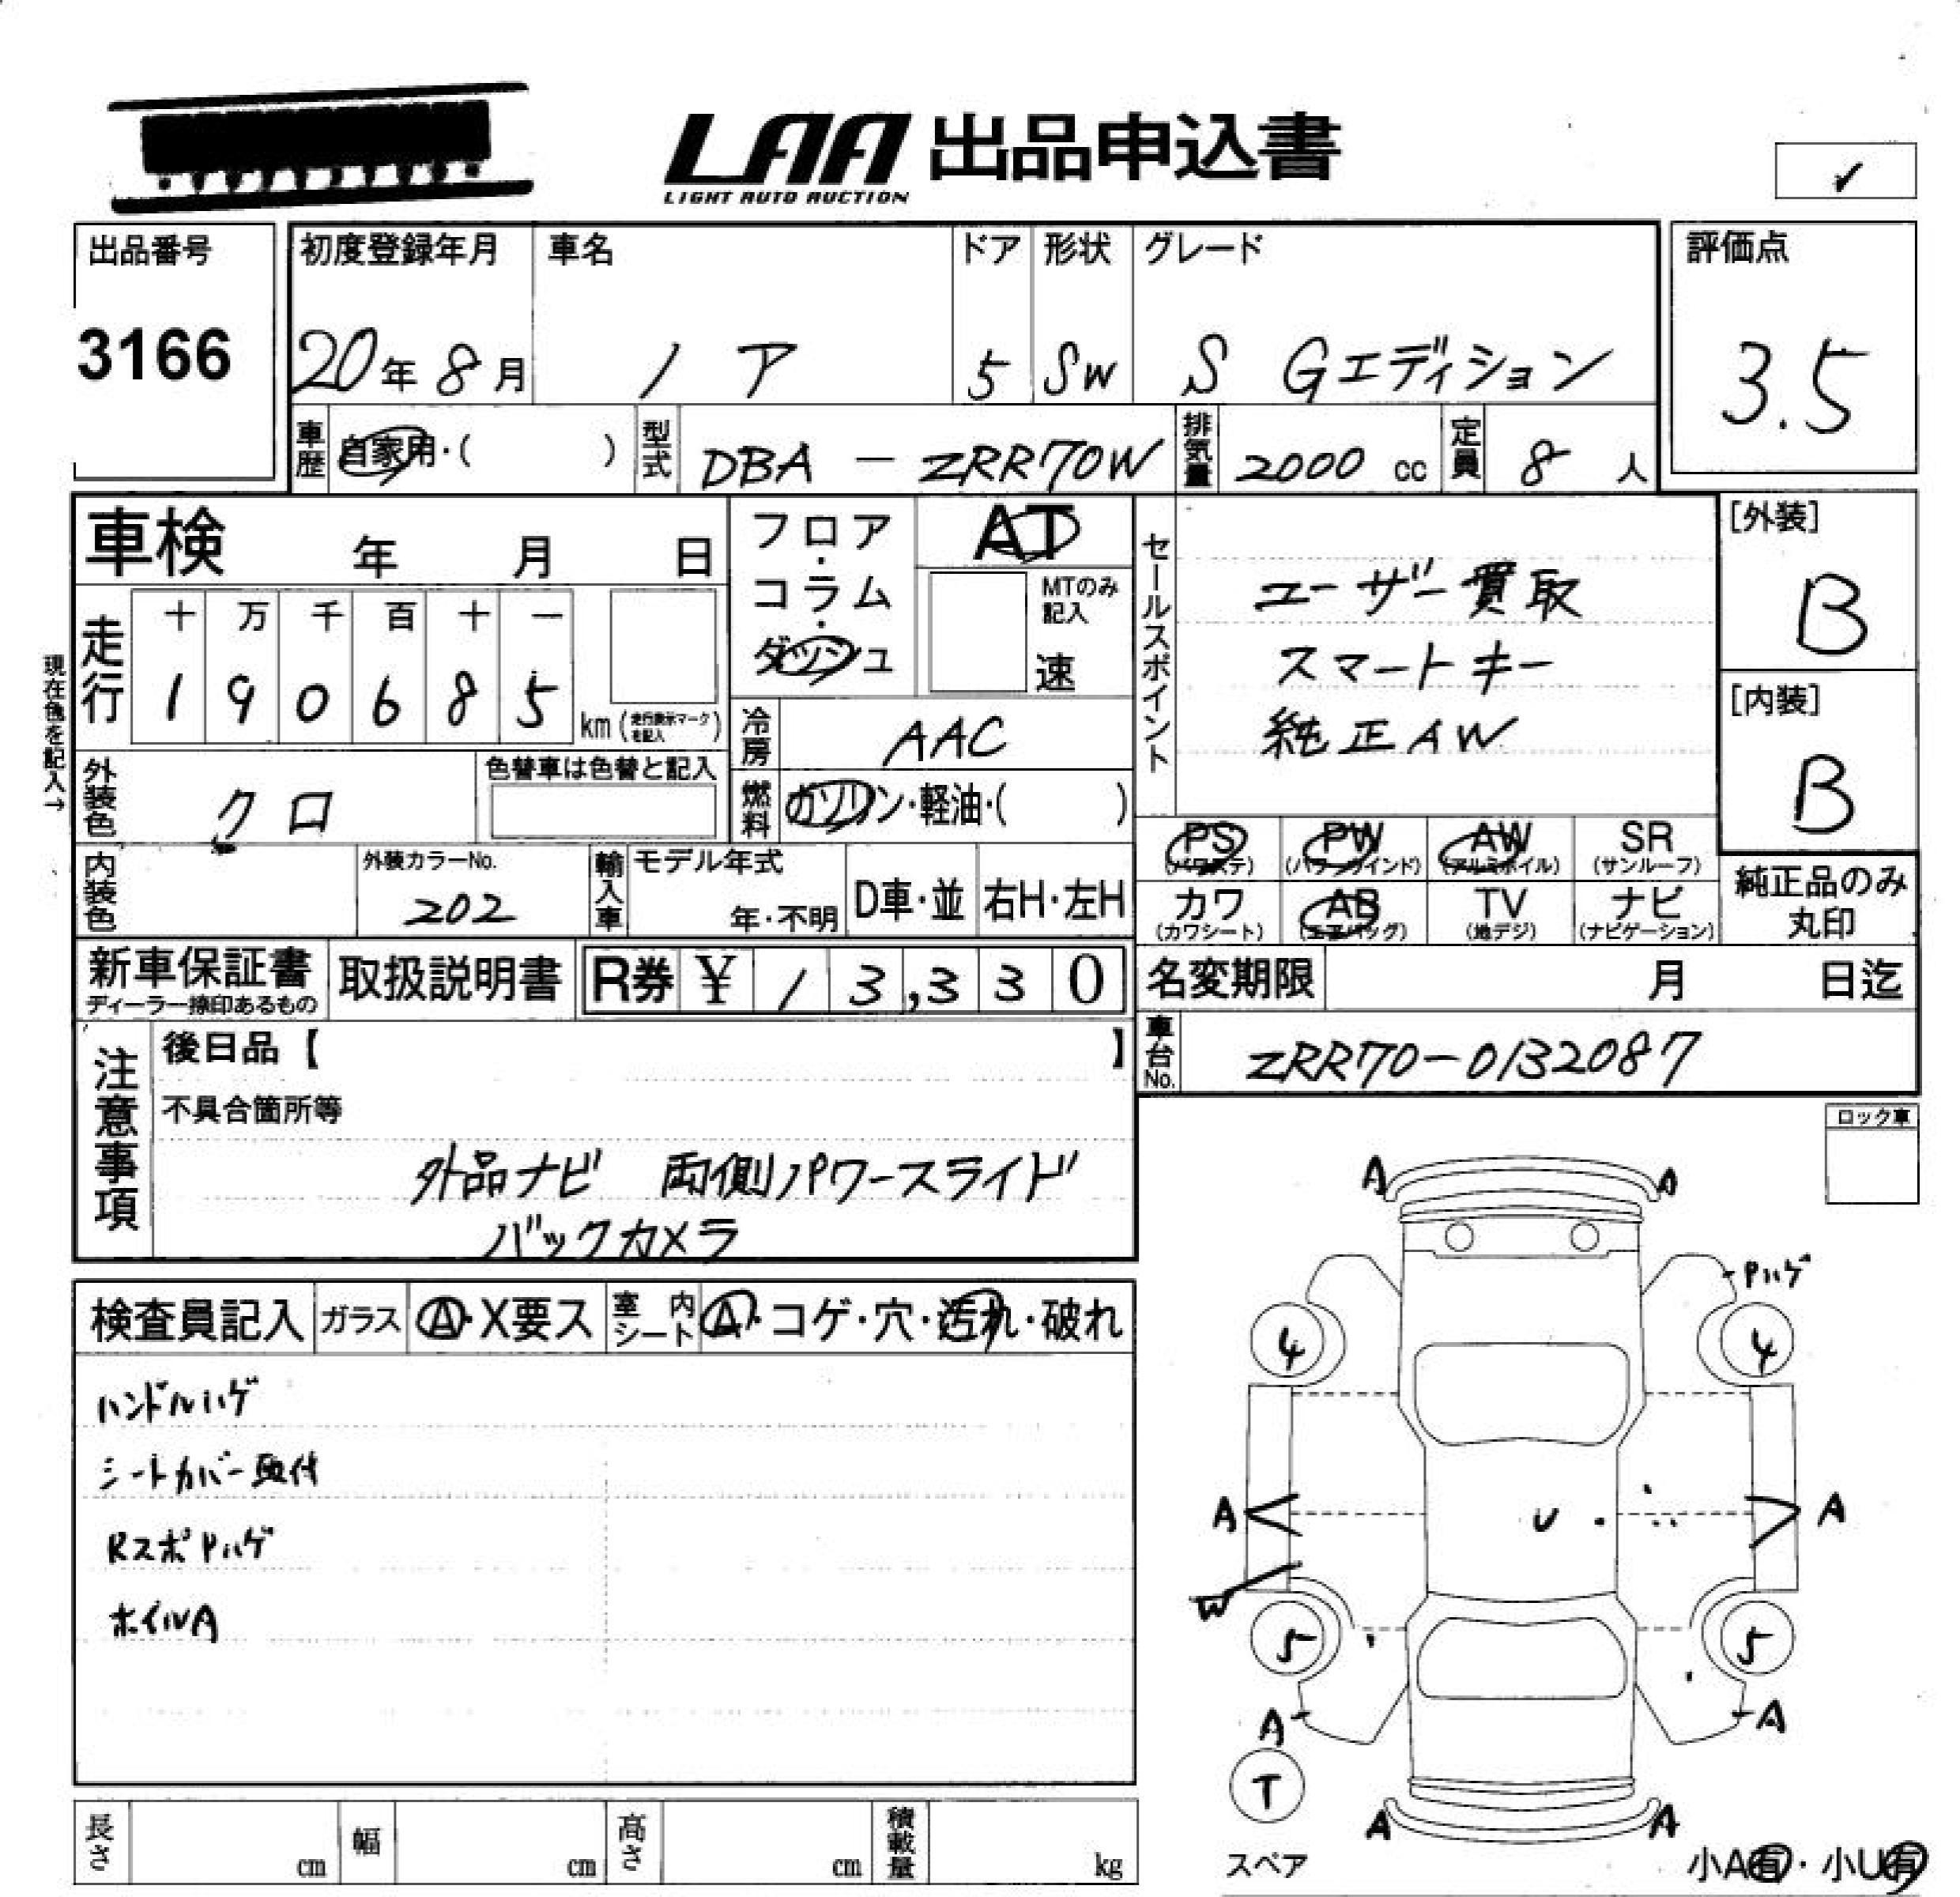 LAA 出品申込書
LIGHT AUTO AUCTION
✓
出品番号
3166
初度登録年月
20年 8月
車名
ノア
ドア
5
形状
SW
グレード
S Gエディション
評価点
3.5
車歴 自家用・( )
型式 DBA - ZRR70W
排気量 2000 cc
定員 8 人
車検 年 月 日
フロア・コラム・ダッシュ
AT
MTのみ記入
速
セールスポイント
ユーザー買取
スマートキー
純正AW
[外装]
B
[内装]
B
現在色を記入→
走行
十 万 千 百 十 一
1 9 0 6 8 5
km (走行表示マークを記入)
冷房 AAC
外装色 クロ
色替車は色替と記入
燃料 ガソリン・軽油・( )
PS (パワステ)
PW (パワーウインド)
AW (アルミホイル)
SR (サンルーフ)
カワ (カワシート)
AB (エアバッグ)
TV (地デジ)
ナビ (ナビゲーション)
純正品のみ
丸印
内装色
外装カラーNo.
202
輸入車
モデル年式
年・不明
D車・並
右H・左H
新車保証書
ディーラー捺印あるもの
取扱説明書
R券 ¥ 13,330
名変期限 月 日迄
車台No. ZRR70-0132087
注意事項
後日品【 】
不具合箇所等
外品ナビ 両側パワースライド
バックカメラ
ロック車
検査員記入 ガラス A・X要ス 室内シート A・コゲ・穴・汚れ・破れ
ハンドルハゲ
シートカバー取付
RスポPハゲ
ホイルA
A A
Pハゲ
4 4
A U A
W
5 5
A A
T
A A
スペア
小A有・小U有
長さ cm
幅 cm
高さ cm
積載量 kg